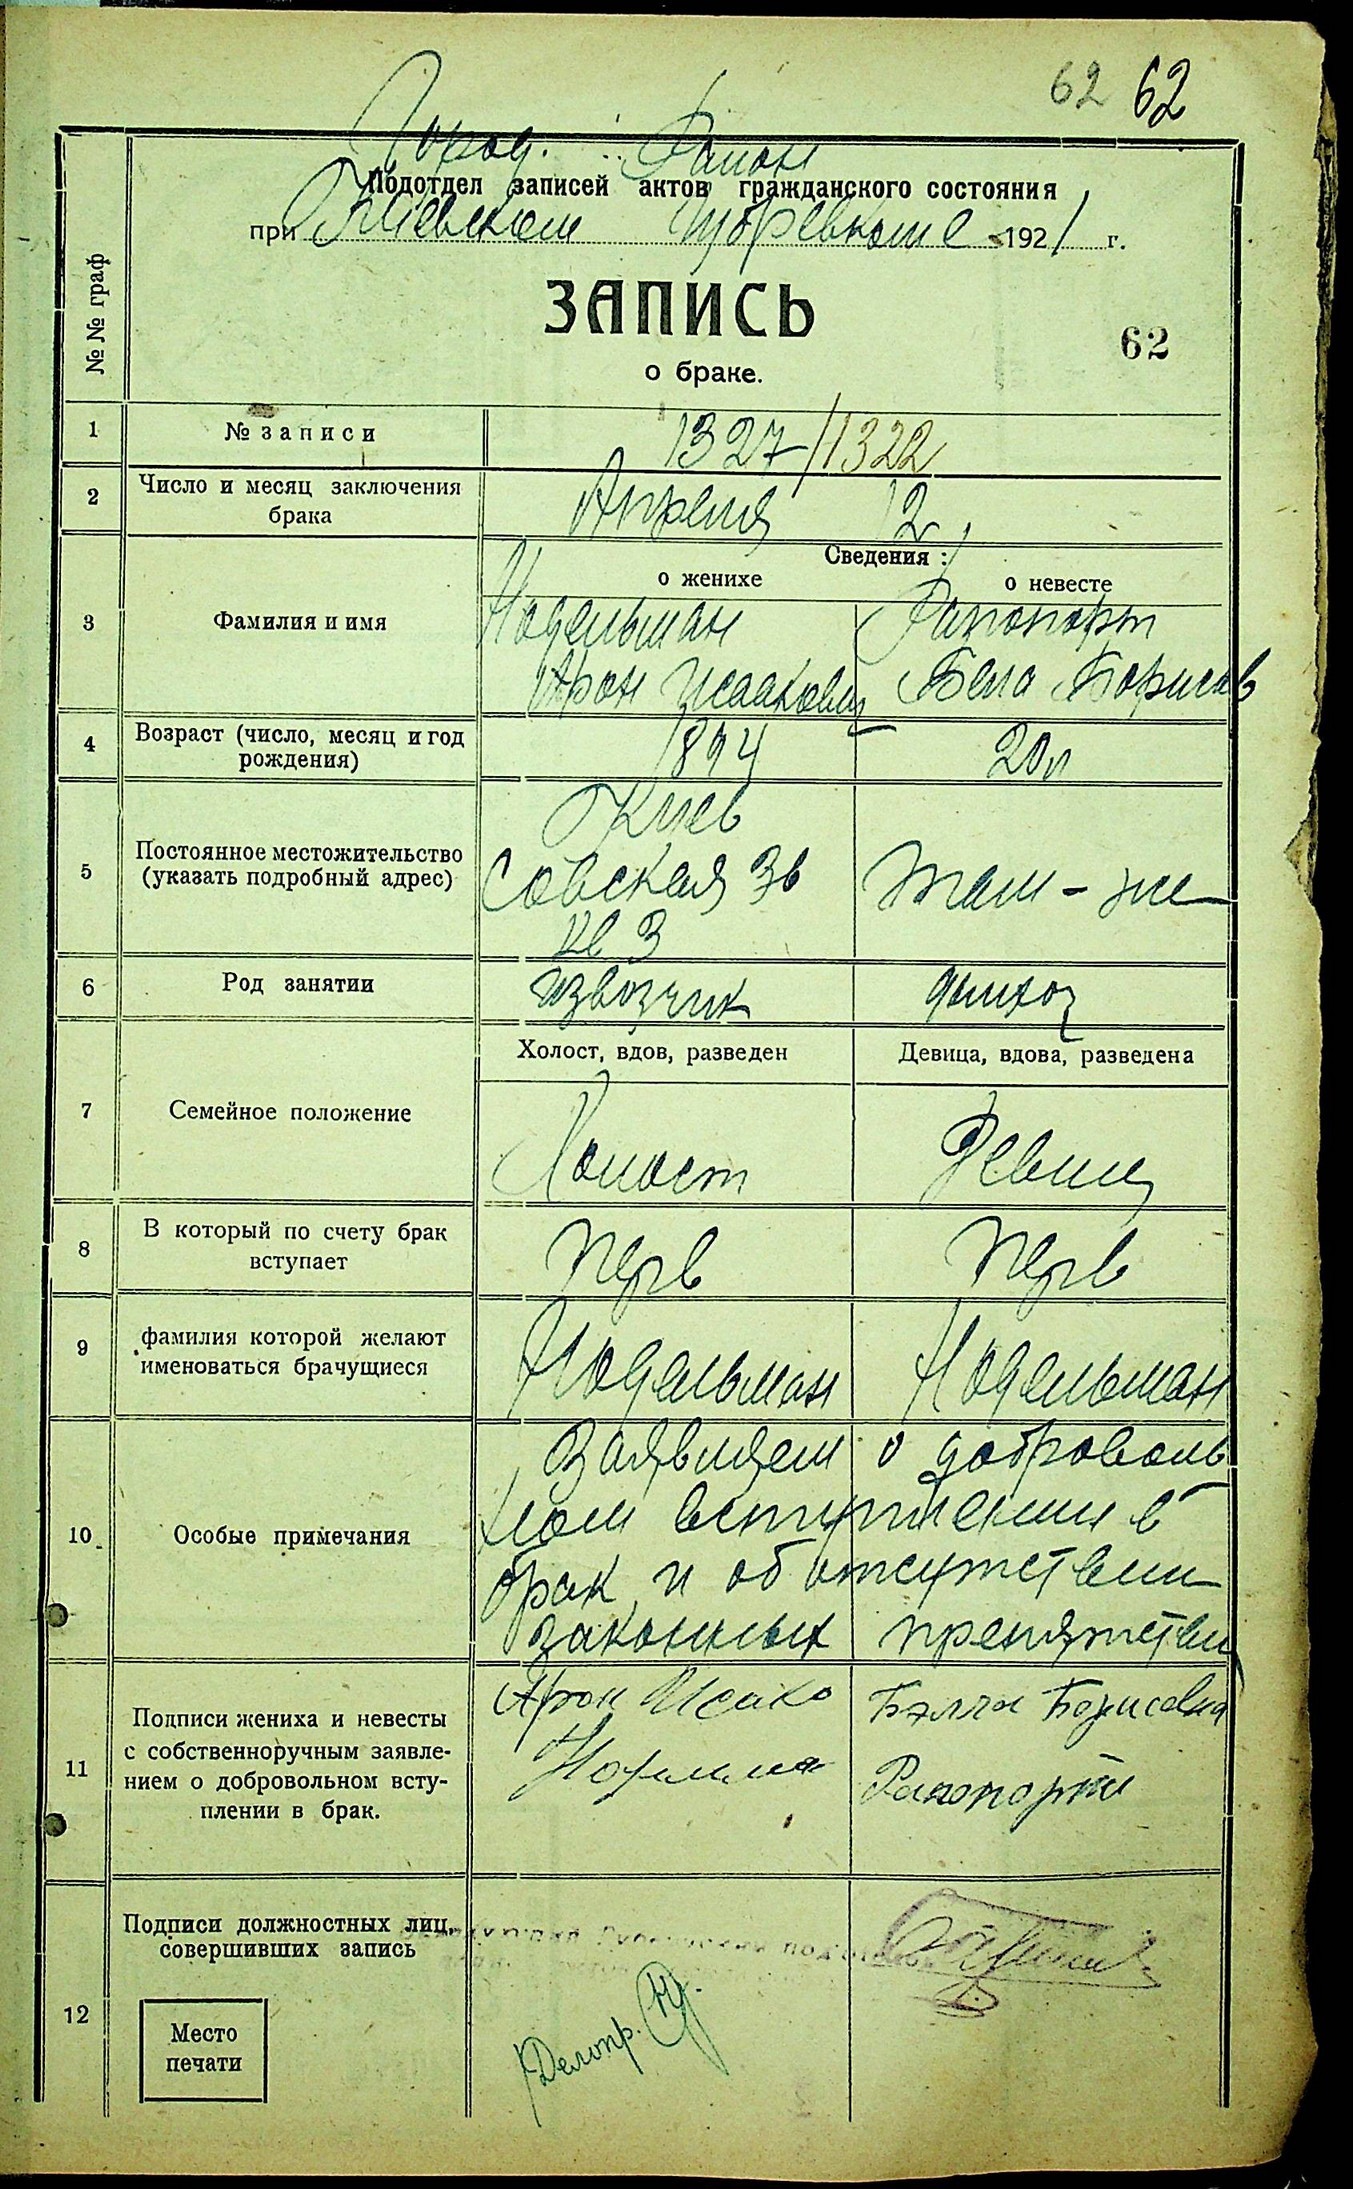 62 62
Город. Район
Подотдел записей актов гражданского состояния
при Киевском Губревкоме 1921 г.
№№ граф
ЗАПИСЬ
62
о браке.
1 № записи 1327/1322
2 Число и месяц заключения брака Апреля 12
Сведения:
о женихе о невесте
3 Фамилия и имя Нодельман Рапопорт
Арон Исаакович Бела Борисов
4 Возраст (число, месяц и год рождения) 1894 20л
5 Постоянное местожительство (указать подробный адрес) Киев
Совская 3в там-же
кв 3
6 Род занятии извозчик домхоз
Холост, вдов, разведен Девица, вдова, разведена
7 Семейное положение Холост Девиц
8 В который по счету брак вступает перв перв
9 фамилия которой желают именоваться брачущиеся Нодельман Нодельман
заявляем о доброволь
ном вступлении в
10 Особые примечания
брак и об отсутствии
законных препятствий
11 Подписи жениха и невесты Арон Исако Бэлла Борисовна
с собственноручным заявле-
нием о добровольном всту- Рапопорт
плении в брак.
12 Подписи должностных лиц,
совершивших запись
Место
печати
Делопр.